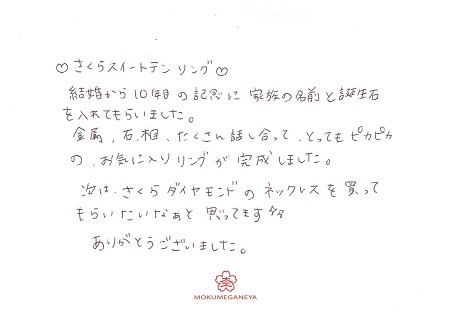 ♡さくらスイートテンリング♡
結婚から10年目の記念に 家族の名前と誕生石
を入れてもらいました。
金属、石、相、たくさん話し合って、とってもピカピカ
の、お気に入りリングが完成しました。
次は、さくらダイヤモンドのネックレスを買って
もらいたいなぁと思ってます✨
ありがとうございました。
MOKUMEGANEYA